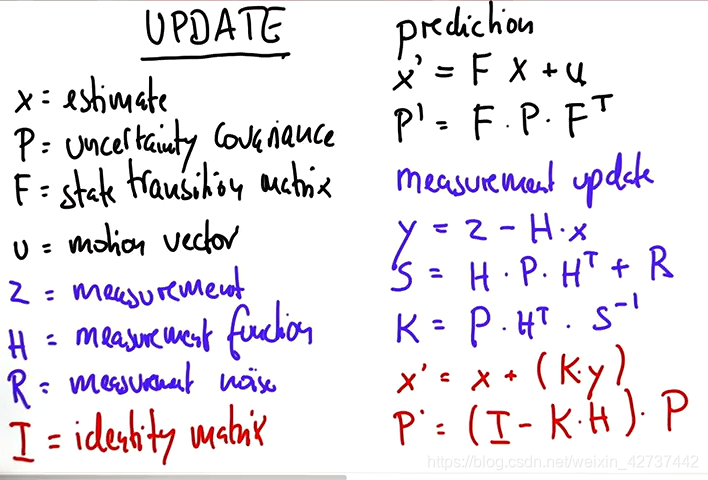 UPDATE
x = estimate
P = uncertainty covariance
F = state transition matrix
u = motion vector
z = measurement
H = measurement function
R = measurement noise
I = identity matrix
prediction
x' = F x + u
P' = F · P · Fᵀ
measurement update
y = z - H · x
S = H · P · Hᵀ + R
K = P · Hᵀ · S⁻¹
x' = x + (K · y)
P' = (I - K · H) · P
https://blog.csdn.net/weixin_42737442